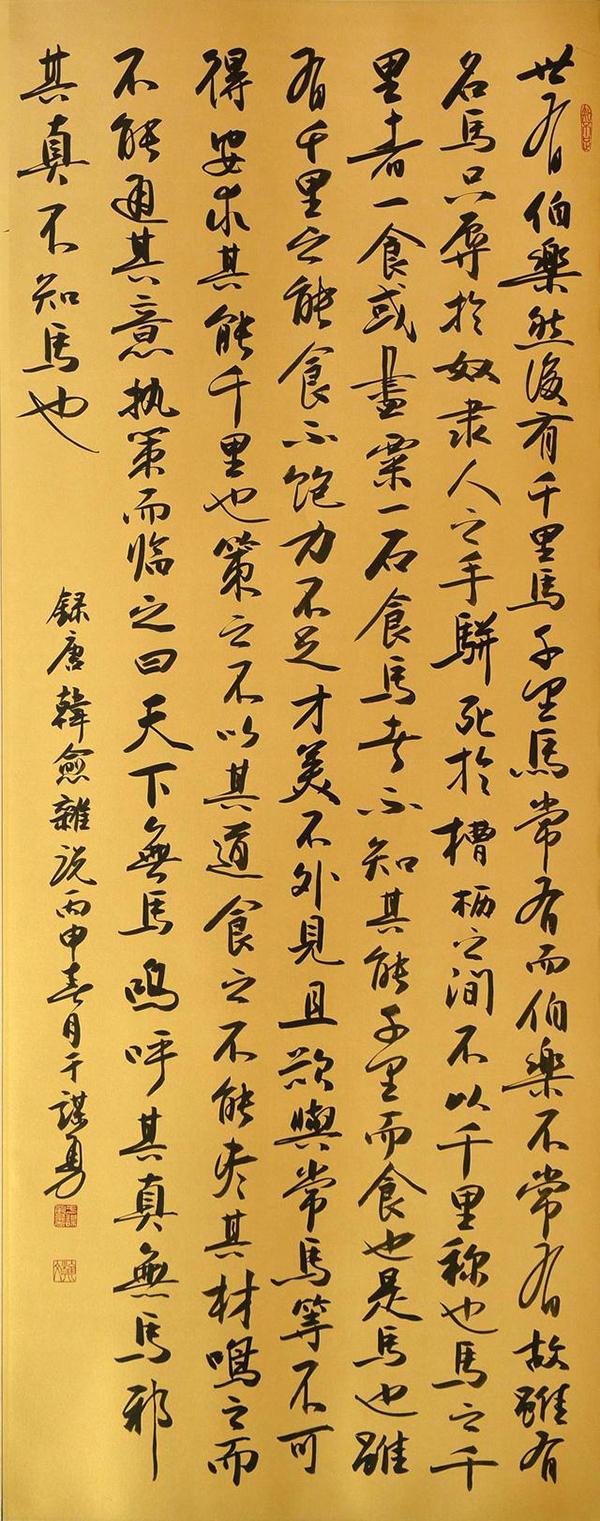 世有伯樂然後有千里馬千里馬常有而伯樂不常有故雖有
名馬只辱於奴隶人之手駢死於槽枥之间不以千里称也馬之千
里者一食或盡粟一石食馬者不知其能千里而食也是馬也雖
有千里之能食不飽力不足才美不外見且欲與常馬等不可
得安求其能千里也策之不以其道食之不能尽其材鳴之而
不能通其意执策而临之曰天下無馬嗚呼其真無馬邪
其真不知馬也
録唐韓愈雜说丙申春月于謀勇